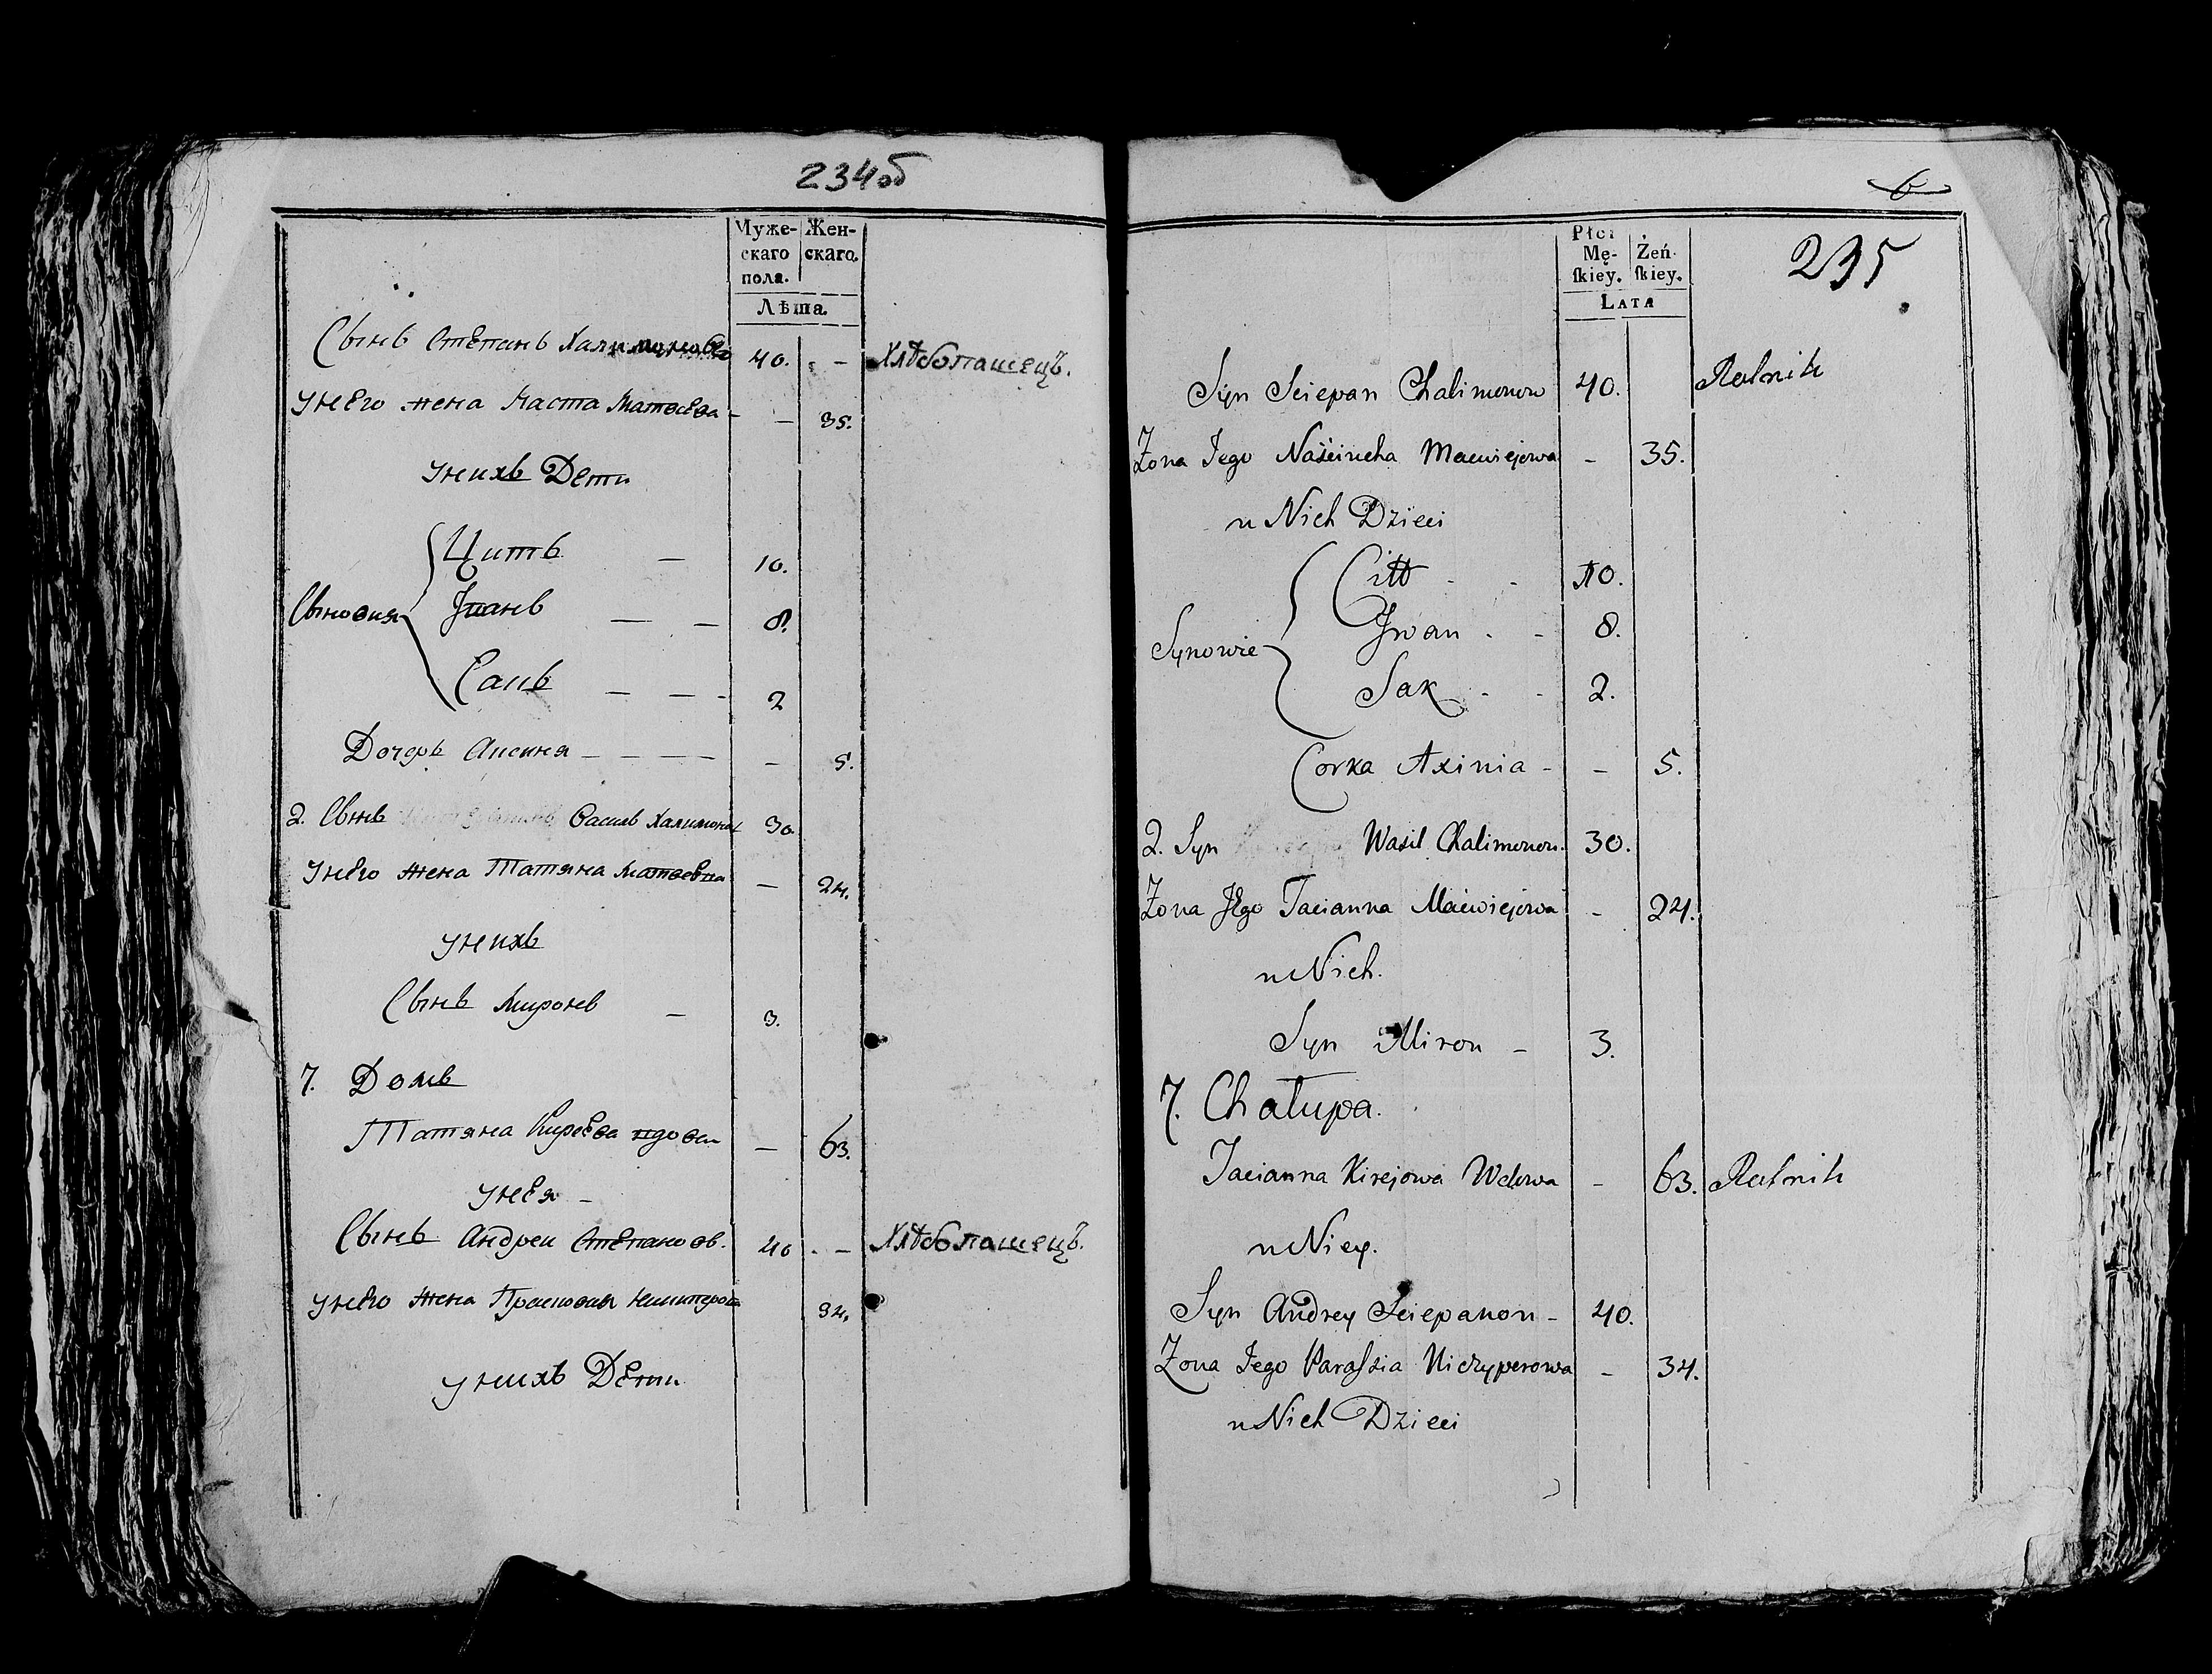 234об
Муже-
скаго
пола.
Жен-
скаго.
Лѣта.
Сынъ Степанъ Халимоновъ 40. - Хлѣбопашецъ.
унего жена Наста Матвеева - - 35.
унихъ Дети
Сыновия
Цитъ - 10.
Іванъ - - 8.
Сакъ - - - 2
Дочерь Аксиня - - - - - 5.
2. Сынъ Василь Халимонов 30.
унего жена Татяна Матвеева - 24.
унихъ
Сынъ Миронъ - 3.
7. Домъ
Татяна Киреева вдова - 63.
унея -
Сынъ Андреи Степановъ. 40. - Хлѣбопашецъ.
унего жена Прасковия Ничиперова 34.
унихъ Дети
6
235
Płci
Mę-
ſkiey.
Żeń-
ſkiey.
Lata
Syn Sciepan Chalimonow 40. Rolnik
Zona Jego Naściucha Maciwiejowa - 35.
u Nich Dzieci
Synowie
Citt - - 10.
Jwan - - 8.
Sak - - 2.
Corka Axinia - - 5.
2. Syn Wasil Chalimonow. 30.
Zona Jego Tacianna Maciwiejowa - 24.
u Nich.
Syn Miron - 3.
7. Chałupa.
Tacianna Kirejowa Wdowa - 63. Rolnik
u Niey.
Syn Andrey Sciepanow - 40.
Zona Jego Paraſzia Niczyperowa - 34.
u Nich Dzieci